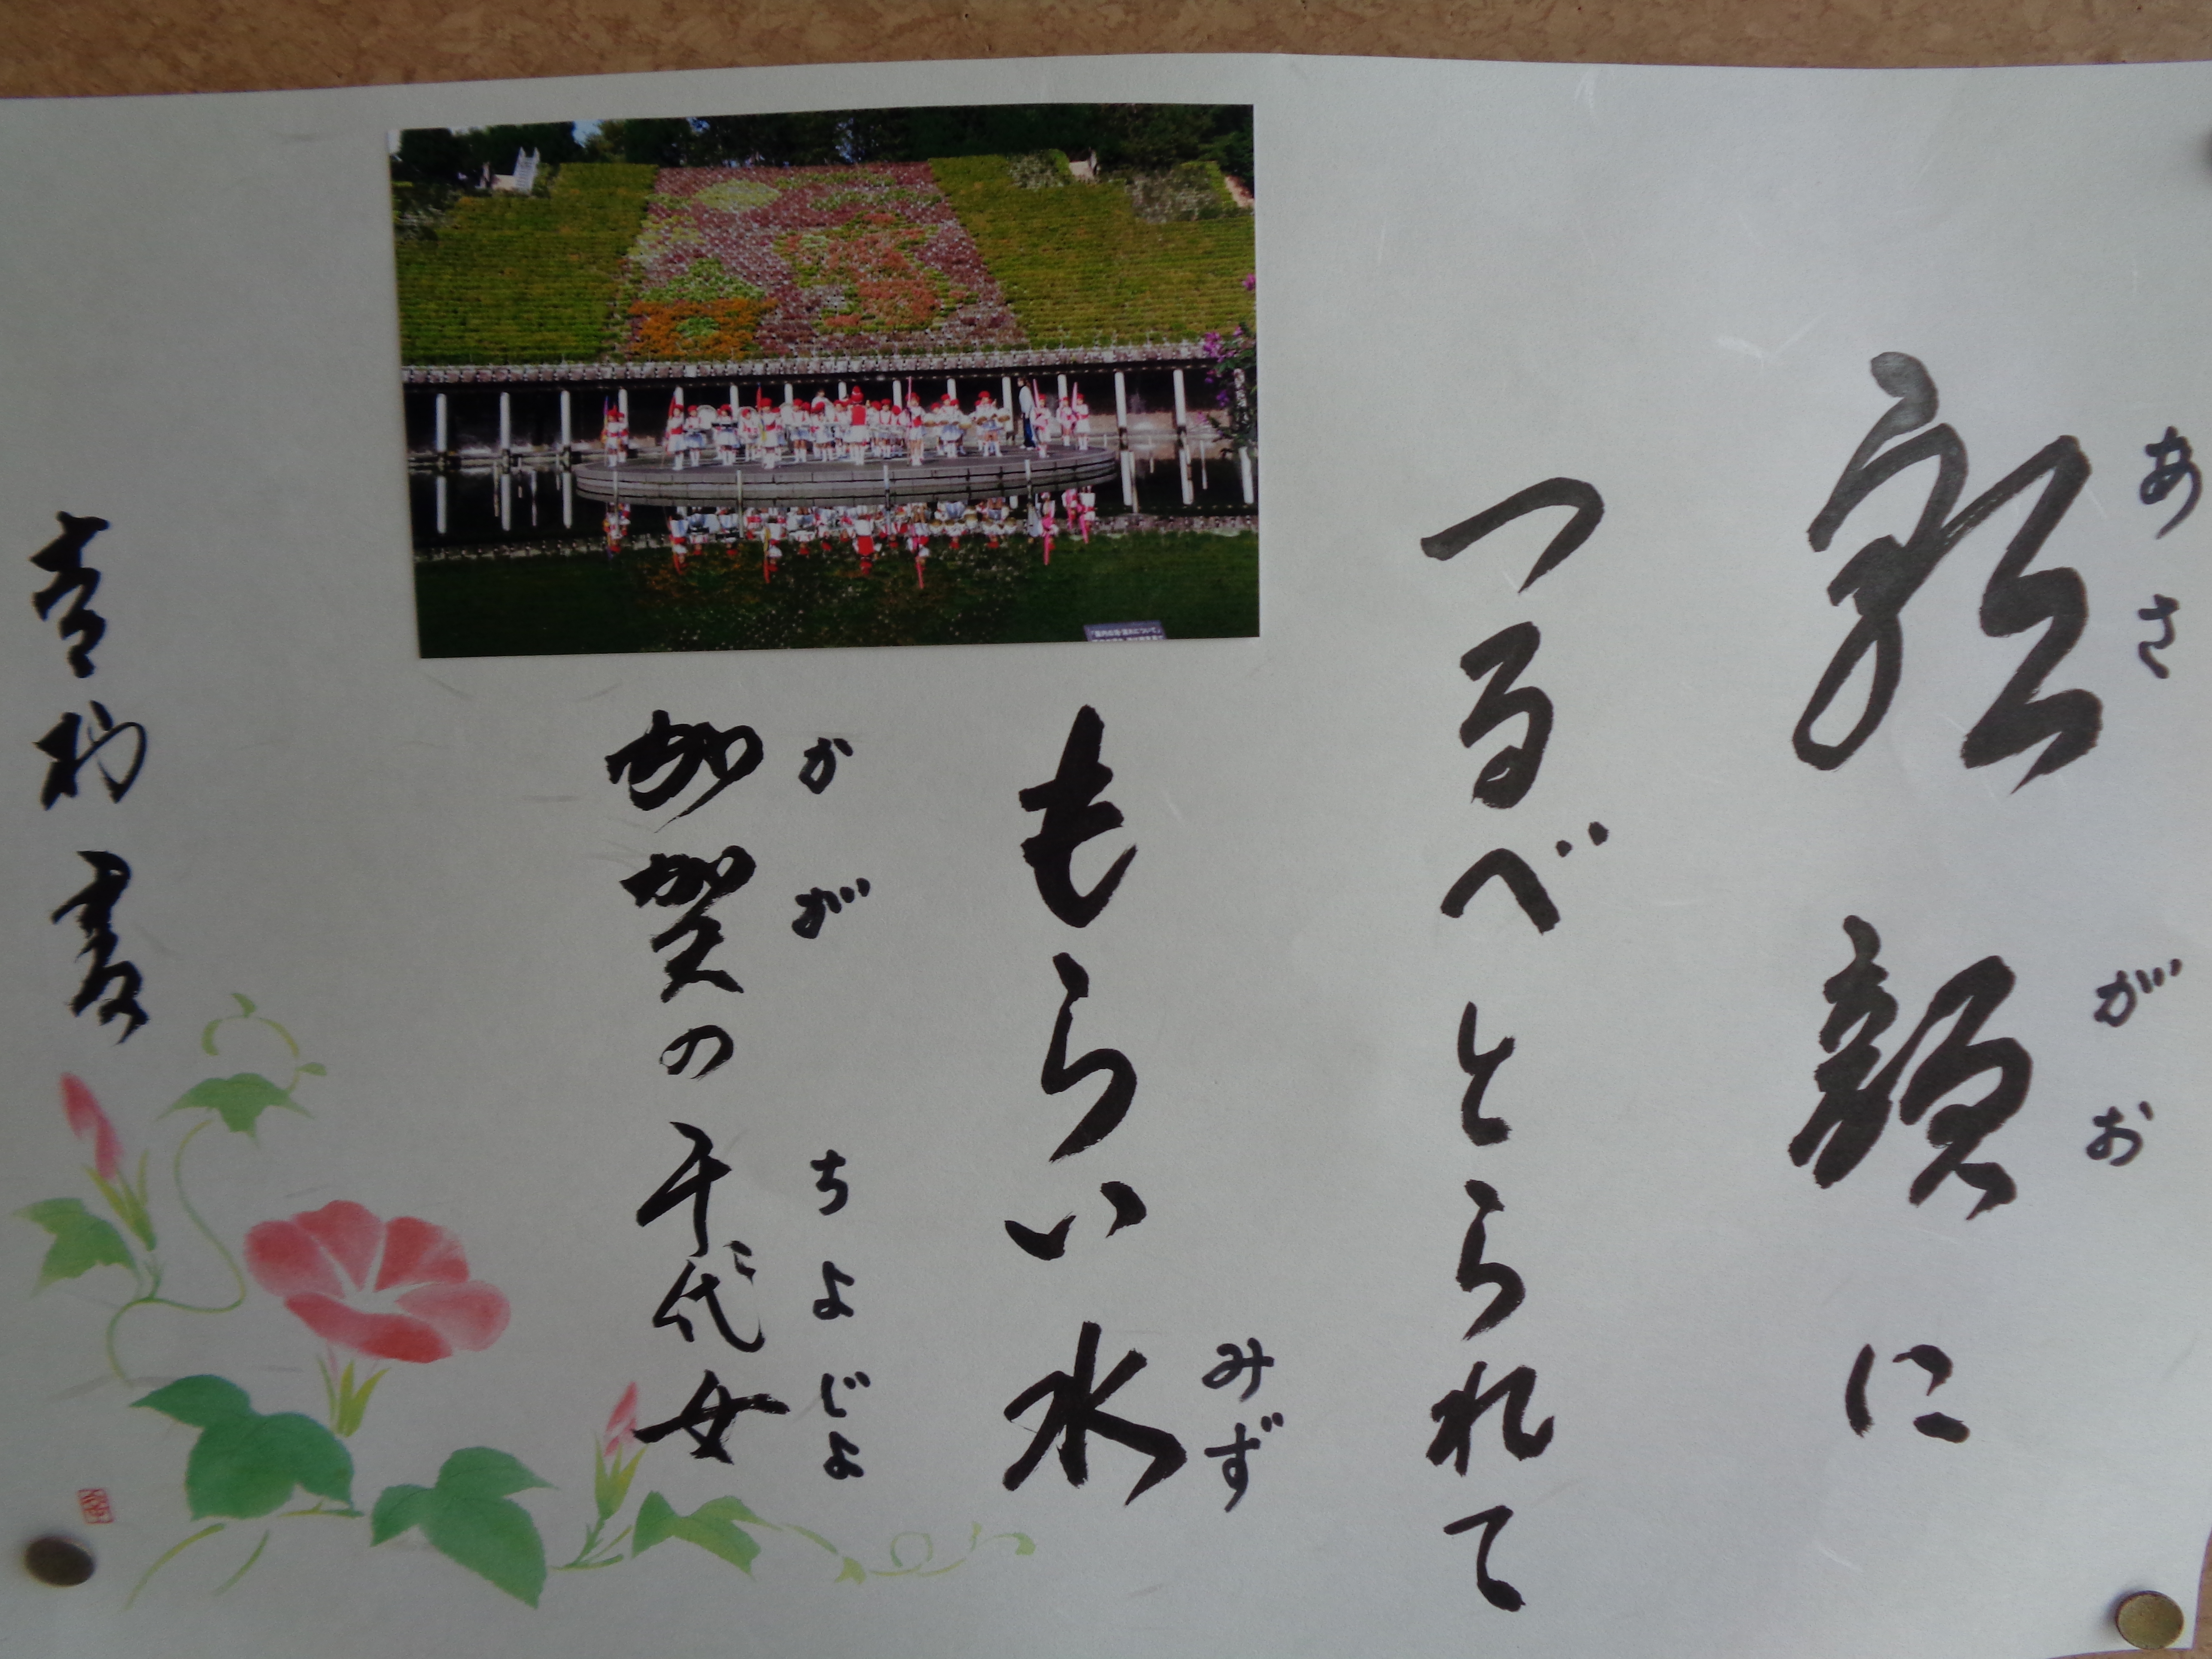 あさがお
朝顔に
つるべとられて
みず
もらい水
かが ちよじょ
加賀の千代女
書